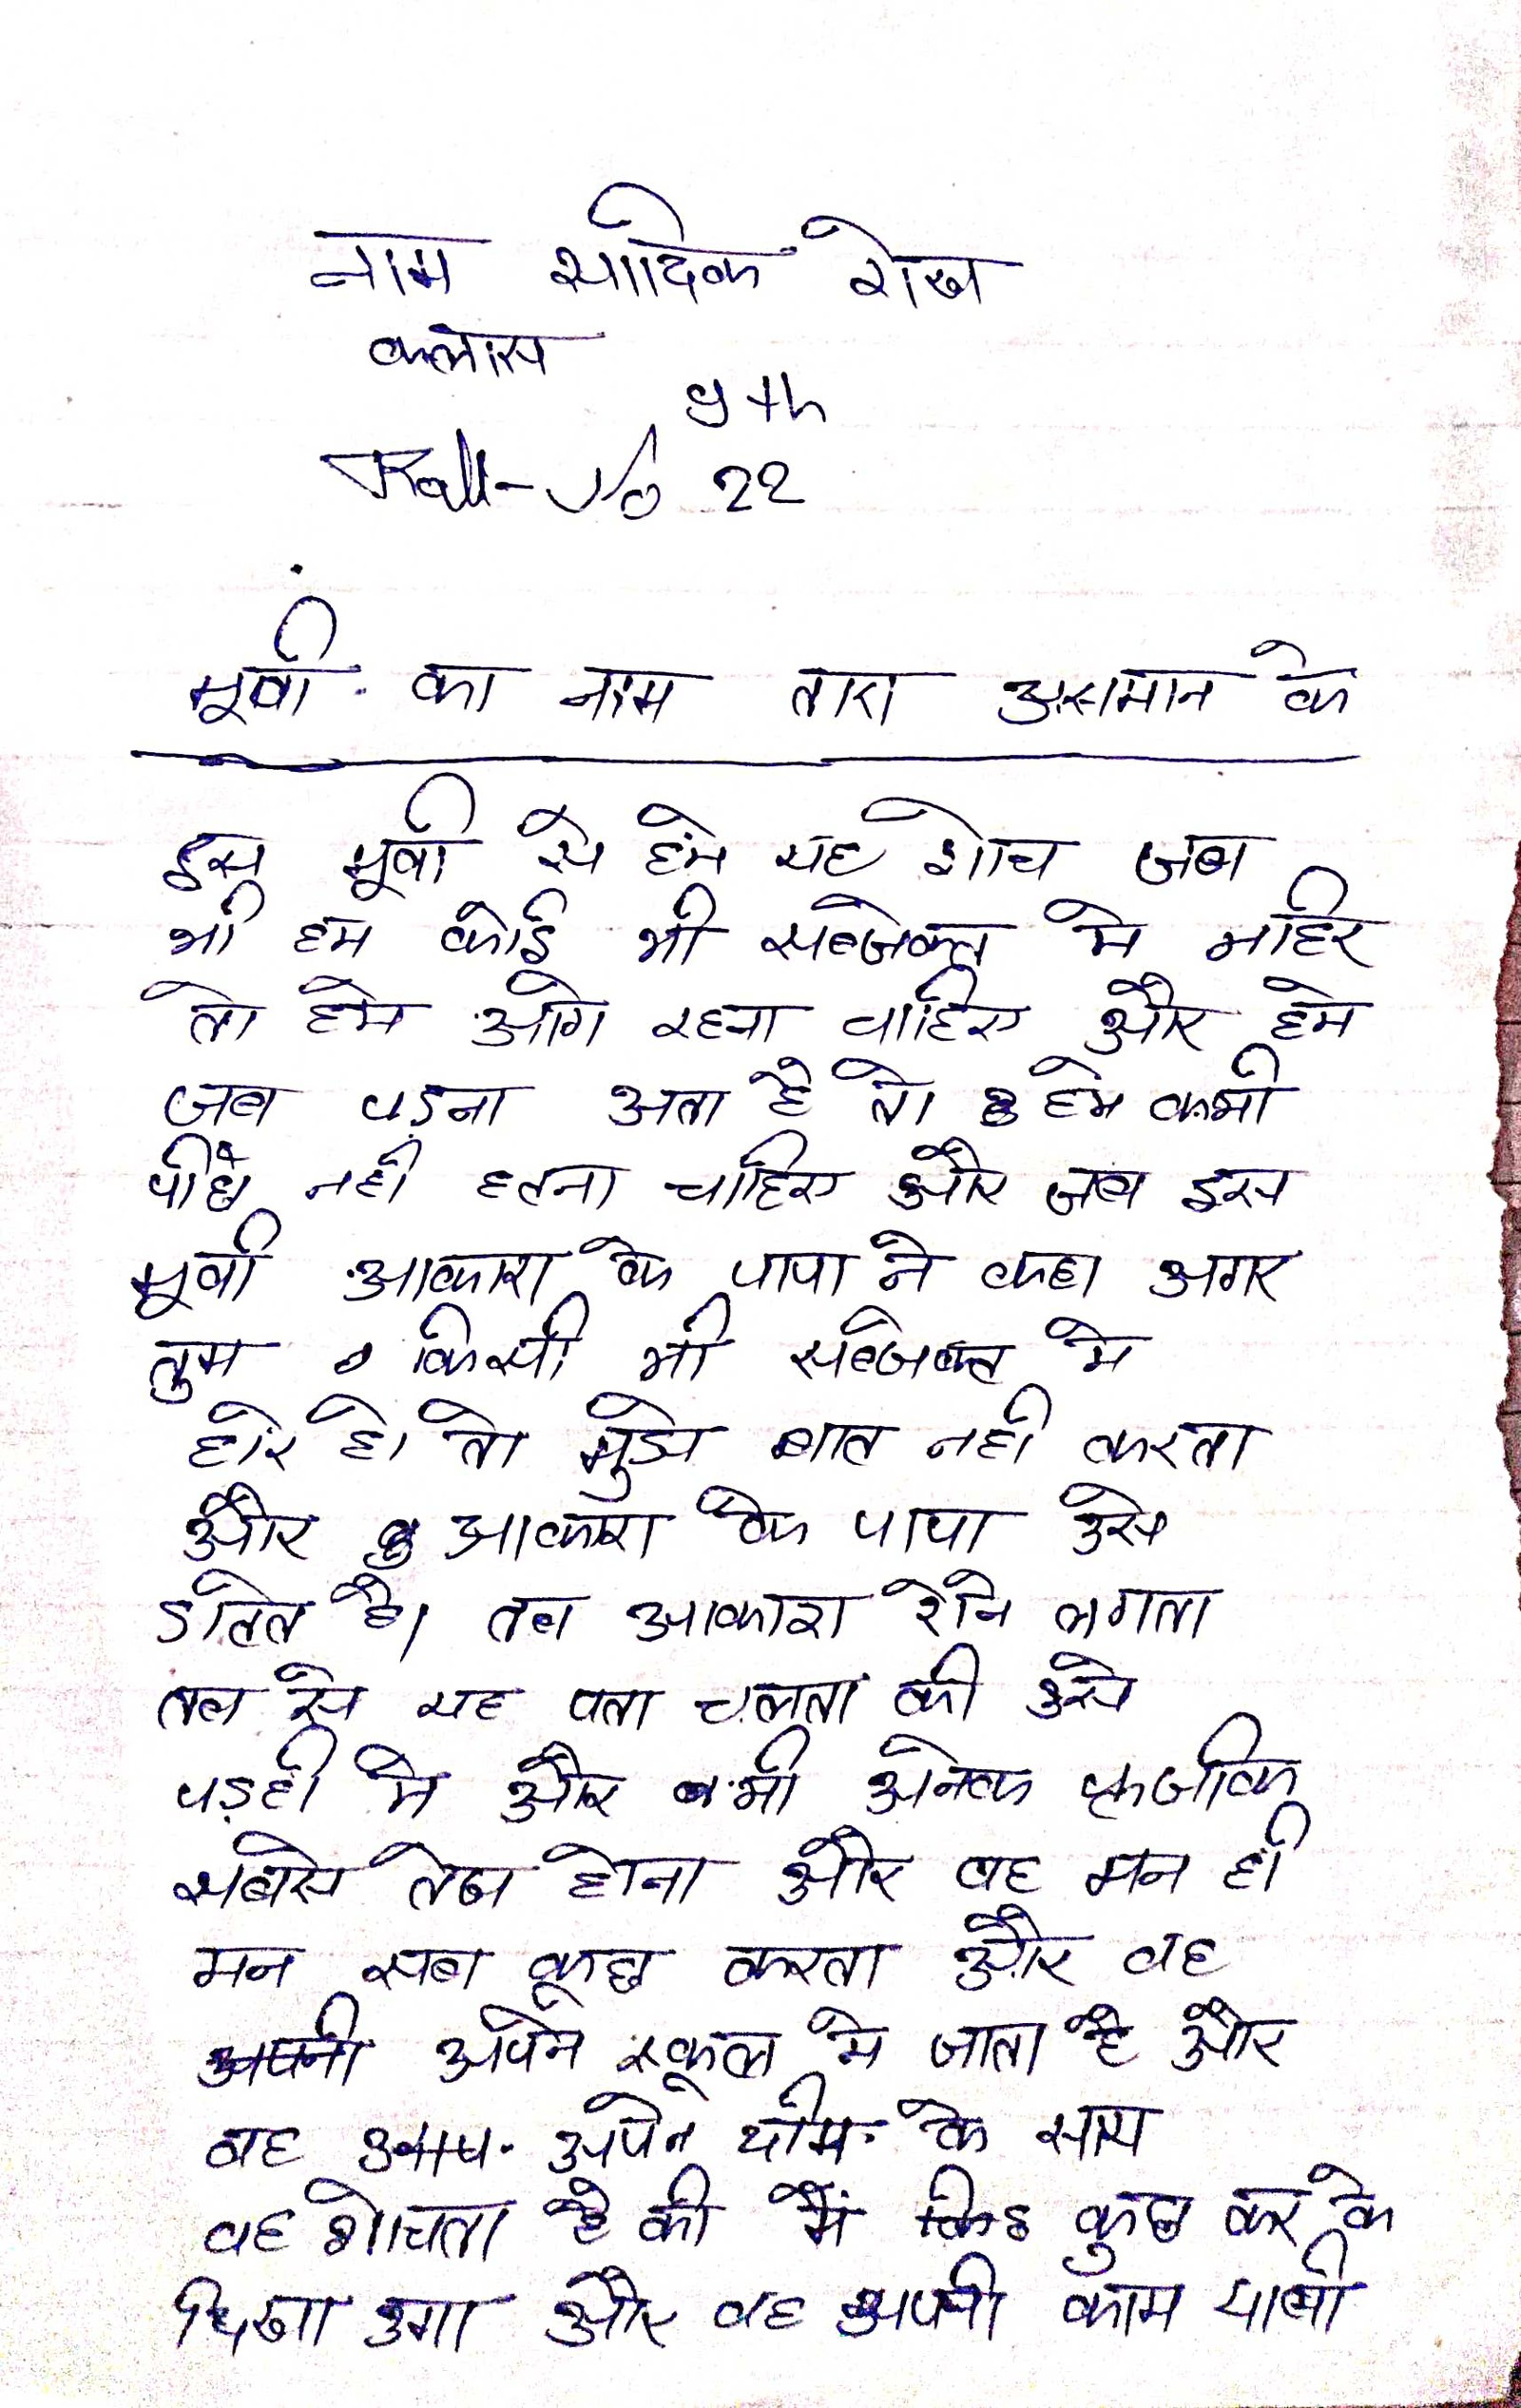 नाम सादिक शेख
क्लास
9th
Roll-No 22
मूवी का नाम तारा असमान के
इस मूवी से हमे यह शोच जब
भी हम कोई भी सब्जेक्त मे माहिर
तो हमे आगे रहना चाहिए और हमे
जब पड़ना अता है तो हमे कभी
पीछे नही हटना चाहिए और जब इस
मूवी आकाश के पापा ने कहा अगर
तुम किसी भी सब्जेक्ट मे
होरे हो तो मुझे बात नही करता
और आकाश के पापा उसे
डाटते है। तब आकाश रोने लगता
तब से यह पता चलता की उसे
पड़ही मे और भी अनेक
सबसे तेज होना और वह मन ही
मन सब कूछ करता और वह
अपनी अपने स्कूल मे जाता है और
वह अपने टीम के साथ
वह शोचता है की मैं कुछ कर के
दिखा उगा और वह अपनी काम याबी